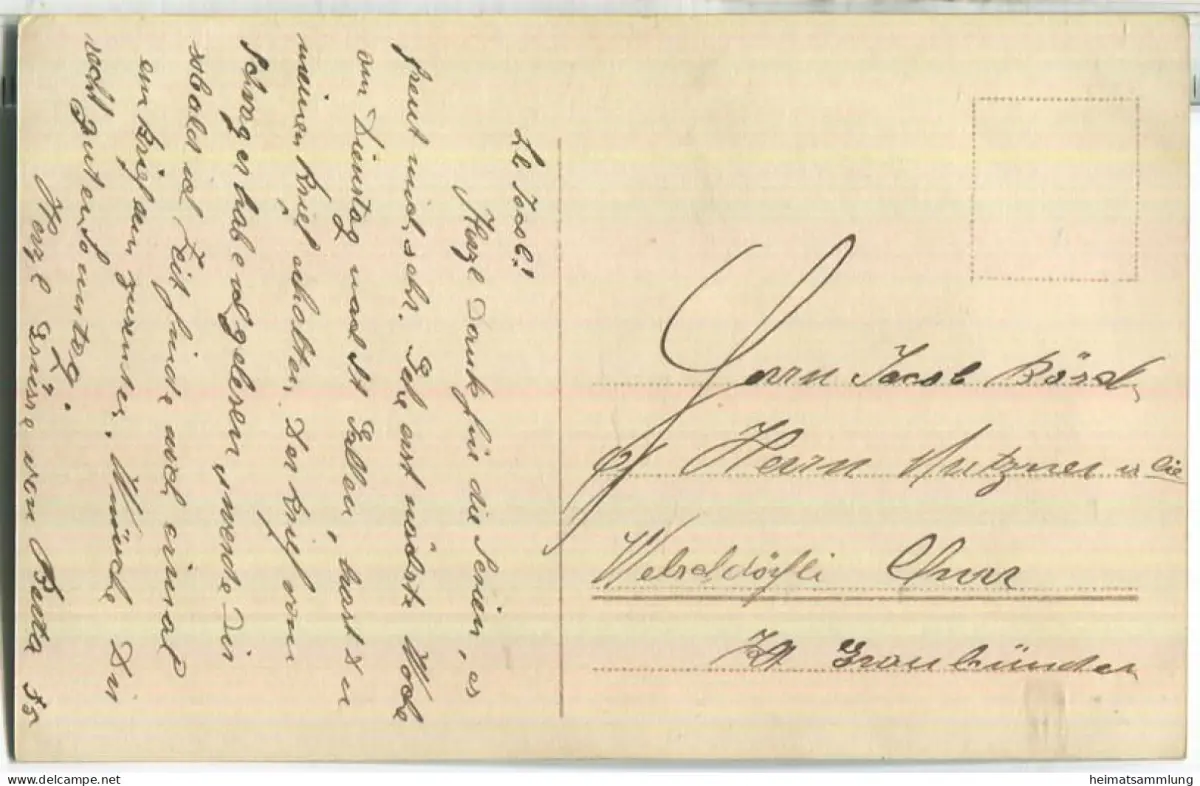 Lb Jacob!
Herzl Dank für die Serien, es
freut mich sehr. Gehe erst nächste Woche
am Dienstag nach St Gallen, hast Du
meinen Brief erhalten, Der Brief vom
Schwager habe ich gelesen, werde Dir
sobald ich Zeit finde auch einmal
ein Brief zusenden. Wünsche Dir
recht Guten Sonntag.
Herzl Grüsse von Betta
Herrn Jacob Bösch
bei Herrn Mutzner & Cie
Welschdörfli Chur
Kt Graubünden
heimatsammlung